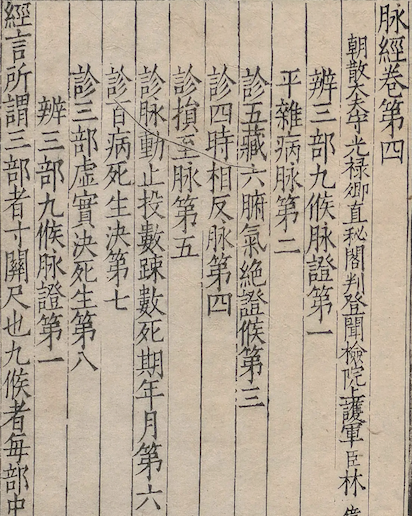 脉經卷第四
朝散大夫守光禄卿直秘閣判登聞檢院上護軍臣林
辨三部九候脉證第一
平雜病脉第二
診五藏六腑氣絕證候第三
診四時相反脉第四
診損至脉第五
診脉動止投數踈數死期年月第六
診百病死生决第七
診三部虛實决死生第八
辨三部九候脉證第一
經言所謂三部者寸關尺也九候者每部中